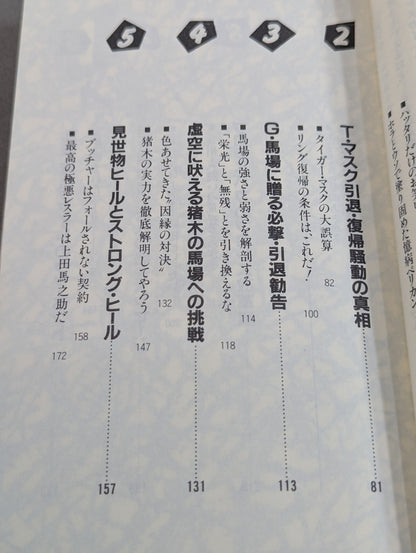 2
T・マスク引退・復帰騒動の真相
81
■タイガー・マスクの大誤算
82
■リング復帰の条件はこれだ!
100
3
G・馬場に贈る必撃・引退勧告
113
■馬場の強さと弱さを解剖する
114
■「栄光」と「無残」とを引き換えるな
118
4
虚空に吠える猪木の馬場への挑戦
131
■色あせてきた“因縁の対決”
132
■猪木の実力を徹底解明してやろう
147
5
見世物ヒールとストロング・ヒール
157
■ブッチャーはフォールされない契約
158
■最高の極悪レスラーは上田馬之助だ
172